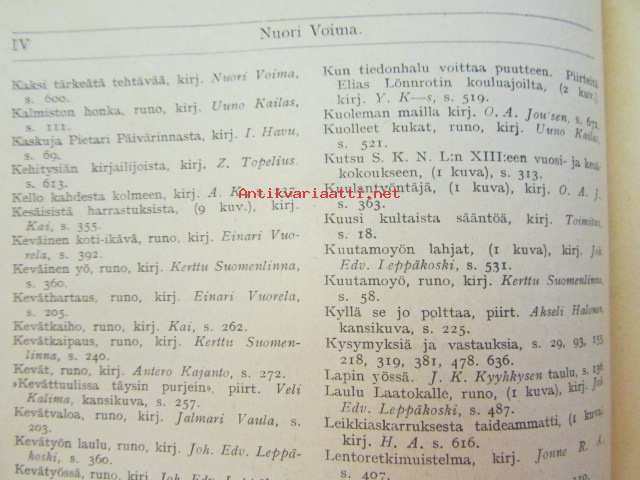 IV
Nuori Voima.
Kaksi tärkeätä tehtävää, kirj. Nuori Voima,
s. 600.
Kalmiston honka, runo, kirj. Uuno Kailas,
s. 111.
Kaskuja Pietari Päivärinnasta, kirj. I. Havu,
s. 69.
Kehitysiän kirjailijoista, kirj. Z. Topelius.
s. 613.
Kello kahdesta kolmeen, kirj. A.
Kesäisistä harrastuksista, (9 kuv.), kirj.
Kai, s. 355.
Keväinen koti-ikävä, runo, kirj. Einari Vuo-
rela, s. 392.
Keväinen yö, runo, kirj. Kerttu Suomenlinna,
s. 360.
Keväthartaus, runo, kirj. Einari Vuorela,
s. 205.
Kevätkaiho, runo, kirj. Kai, s. 262.
Kevätkaipaus, runo, kirj. Kerttu Suomen-
linna, s. 240.
Kevät, runo, kirj. Antero Kajanto, s. 272.
»Kevättuulissa täysin purjein», piirt. Veli
Kalima, kansikuva, s. 257.
Kevätvaloa, runo, kirj. Jalmari Vaula, s.
203.
Kevätyön laulu, runo, kirj. Joh. Edv. Leppä-
koski, s. 360.
Kevätyössä, runo, kirj. Joh. Edv.
Kun tiedonhalu voittaa puutteen. Piirteitä
Elias Lönnrotin kouluajoilta, (2 kuv.)
kirj. Y. K—s, s. 519.
Kuoleman mailla kirj. O. A. Jousen, s. 671.
Kuolleet kukat, runo, kirj. Uuno Kailas,
s. 521.
Kutsu S. K. N. L:n XIII:een vuosi- ja kesä-
kokoukseen, (1 kuva), s. 313.
Kuulantyöntäjä, (1 kuva), kirj. O. A. J.
s. 363.
Kuusi kultaista sääntöä, kirj. Toimitus,
s. 18.
Kuutamoyön lahjat, (1 kuva), kirj. Joh.
Edv. Leppäkoski, s. 531.
Kuutamoyö, runo, kirj. Kerttu Suomenlinna,
s. 58.
Kyllä se jo polttaa, piirt. Akseli Halonen,
kansikuva, s. 225.
Kysymyksiä ja vastauksia, s. 29, 93, 155
218, 319, 381, 478. 636.
Lapin yössä. J. K. Kyyhkysen taulu, s. 136
Laulu Laatokalle, runo, (1 kuva), kirj. Joh
Edv. Leppäkoski, s. 487.
Leikkiaskarruksesta taideammatti, (1 kuva)
kirj. H. A. s. 616.
Lentoretkimuistelma, kirj. Jonne R. A.
s. 407.
Antikvariaatti.net